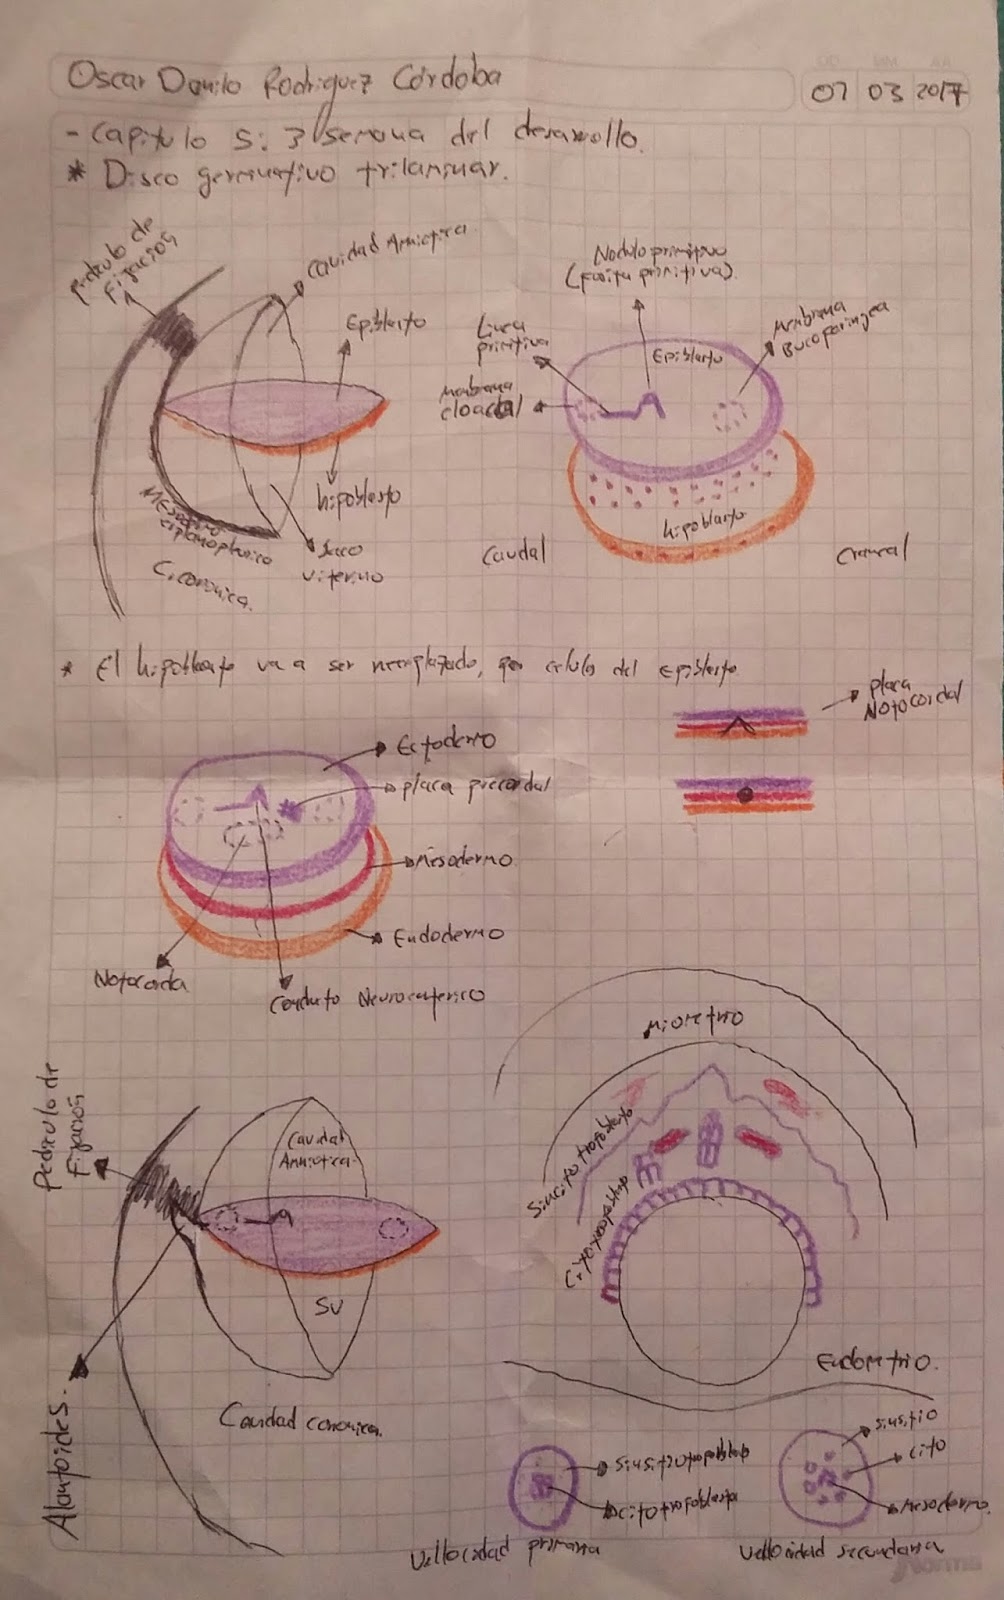 Oscar Danilo Rodriguez Córdoba
07 03 2017
- Capitulo 5: 3 semana del desarrollo.
* Disco germinativo trilaminar.
Pediculo de
Fijación
Cavidad Amniotica
Epiblasto
hipoblasto
Saco
viterino
Mesodermo
C. corionica.
Nodulo primitivo
(fosita primitiva).
Linea
primitiva
Membrana
cloacal
Epiblasto
Membrana
Bucofaringea
hipoblasto
Caudal
Craneal
* El hipoblasto va a ser reemplazado, por celulas del Epiblasto
placa
Notocordal
Ectodermo
placa precordal
Mesodermo
Endodermo
Notocorda
Conducto Neuroenterico
Pediculo de
Fijación
Cavidad
Amniotica
SV
Alantoides.
Cavidad corionica.
Miometrio
Sincitotrofoblasto
Citotrofoblasto
Endometrio.
Sinsitiotrofoblasto
citotrofoblasto
Vellocidad primaria
sinsitio
cito
Mesodermo.
Vellocidad secundaria
Norma